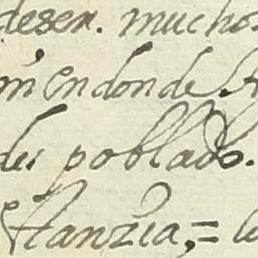 desen. mucho
m endonde
des poblado.
stanzia, =